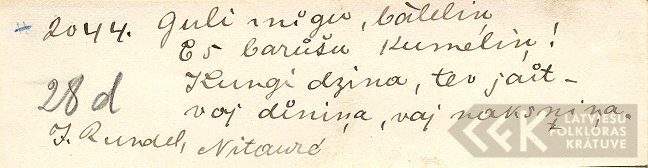 2044. Guli mīgu, bāleliņ
Es barūšu kumeliņ!
Kungi dzina, tev jāit –
28 d
voj dīniņa, vaj naksniņa.
J. Rundel, Nītaurē
LATVIEŠU
FOLKLORAS
KRĀTUVE